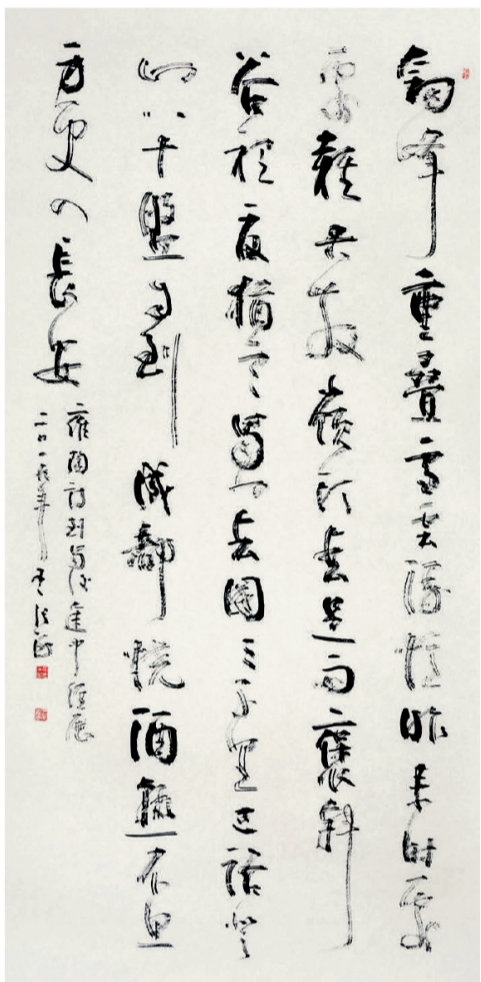 劍峰重疊雪雲漫憶昨來時處
處難大散嶺頭春足雨褒斜
谷裡夏猶寒蜀門去國三千里巴路登
山八十盤自到成都燒酒熟不思
身更入長安
雍陶詩到蜀後途中經歷
二〇一九年